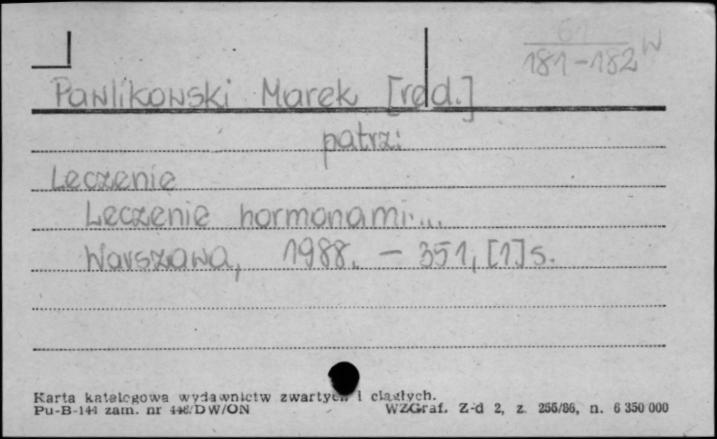 61 W
181-182
Pawlikowski Marek [red.]
patrz:
Leczenie
Leczenie hormonami...
Warszawa, 1988. - 351, [1] s.
Karta katalogowa wydawnictw zwartych i ciągłych.
Pu-B-144 zam. nr 446/DW/ON WZGraf. Z-d 2, z. 256/86, n. 6 350 000